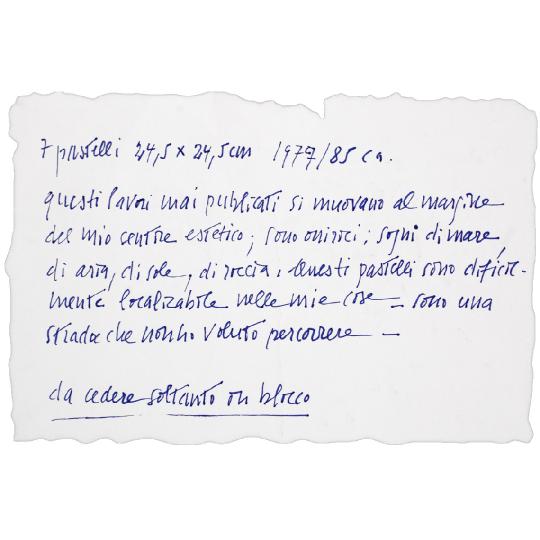 7 pastelli 24,5 x 24,5 cm 1977/85 ca.
questi lavori mai publicati si muovano al margine
del mio centro estetico; sono onirici; sogni di mare,
di aria, di sole, di roccia. Questi pastelli sono dificil-
mente localizabile nelle mie cose – sono una
strada che non ho voluto percorrere –
da cedere soltanto in blocco